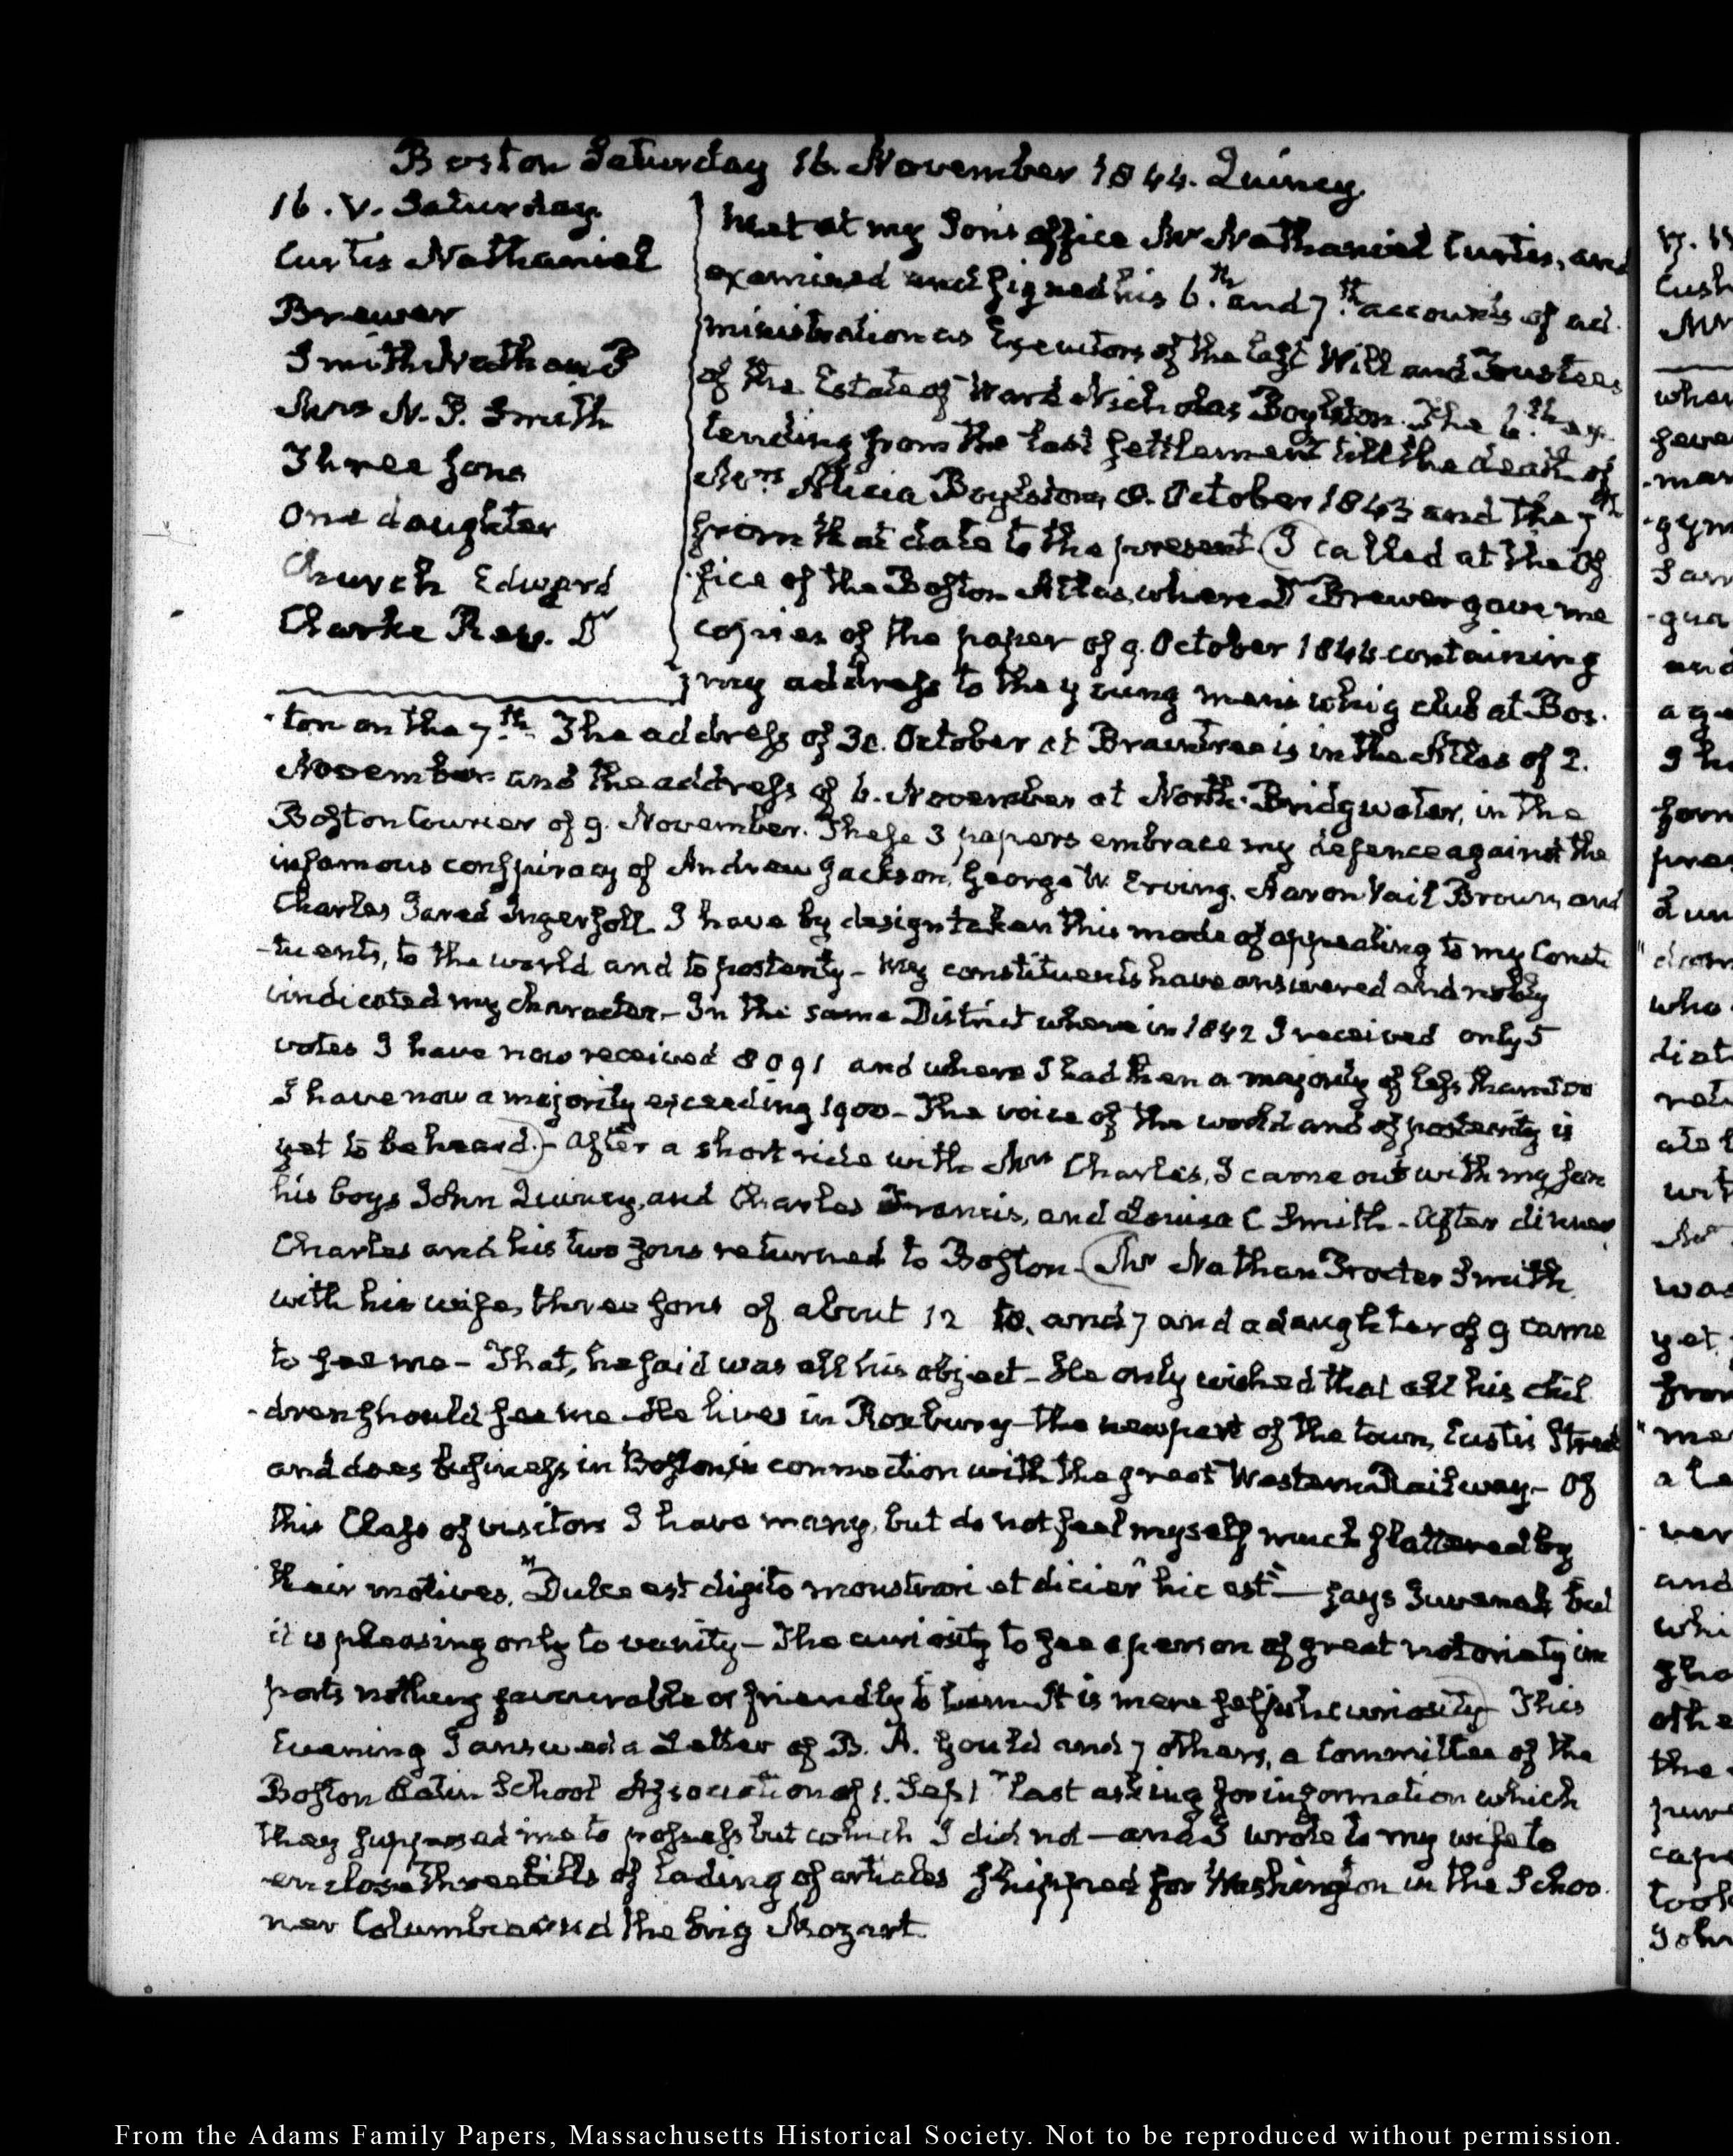 Boston Saturday 16. November 1844. Quincy.
16. V. Saturday.
Curtis Nathaniel
Brewer
Smith Nathan P
Mrs N. P. Smith
Three sons
One daughter
Church Edward
Clarke Rev. Dr
Met at my Son's office Mr Nathaniel Curtis, and
examined and signed his 6.th and 7.th accounts of ad-
ministration as Executors of the last Will and Trustees
of the Estate of Ward Nicholas Boylston. The 6.th ex-
tending from the last settlement till the death of
Mrs Alicia Boylston, 8. October 1843 and the 7th
from that date to the present. I called at the Of-
fice of the Boston Atlas, where Dr Brewer gave me
copies of the paper of 9. October 1844 containing
my address to the young men's whig club at Bos-
-ton on the 7.th The address of 30. October at Braintree is in the Atlas of 2.
November and the address of 6. November at North-Bridgwater, in the
Boston Courier of 9. November. These 3 papers embrace my defence against the
infamous conspiracy of Andrew Jackson, George W. Erving, Aaron Vail Brown, and
Charles Jared Ingersoll. I have by design taken this mode of appealing to my Consti
-tuents, to the world and to posterity – My constituents have answered and nobly
vindicated my character. – In the same District where in 1842 I received only 5
votes I have now received 8091 and where I had then a majority of less than
I have now a majority exceeding 1900 – The voice of the world and of posterity is
yet to be heard. – After a short ride with Mrs Charles, I came out with my son
his boys John Quincy, and Charles Francis, and Louisa C Smith – After dinner
Charles and his two sons returned to Boston – Mr Nathan Procter Smith,
with his wife, three sons of about 12 10, and 7 and a daughter of 9 came
to see me – That, he said was all his object – He only wished that all his chil
-dren should see me – He lives in Roxbury – the near part of the town, Eustis Street
and does business in Boston in connection with the great Western Railway – Of
this Class of visitors I have many, but do not feel myself much flattered by
their motives. "Dulce est digito monstrari et dicier hic est" – says Juvenal, but
it is pleasing only to vanity – The curiosity to see a person of great notoriety im
ports nothing favourable or friendly to him – It is mere selfish curiosity – This
Evening I answered a Letter of B. A. Gould and 7 others, a Committee of the
Boston Latin School Association of 1. Sept r last asking for information which
they supposed me to possess but which I did not – and I wrote to my wife to
enclose three bills of lading of articles shipped for Washington in the Schoo-
ner Columbia and the brig Mozart.
From the Adams Family Papers, Massachusetts Historical Society. Not to be reproduced without permission.